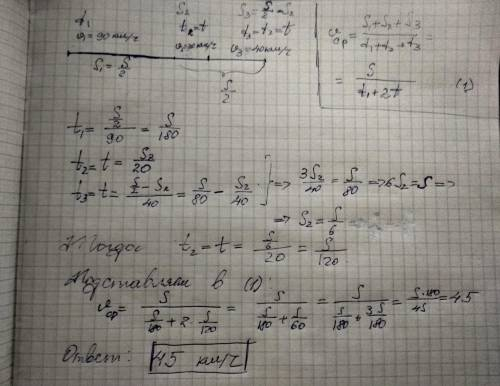 t₁ S₂ S₃ = S/2 − S₂
v₁ = 90 км/ч t₂ = t t₃ = t₂ = t
v₂ = 20 км/ч v₃ = 40 км/ч
S₁ = S/2 S/2
vср = (S₁ + S₂ + S₃)/(t₁ + t₂ + t₃) =
= S/(t₁ + 2t) (1)
t₁ = (S/2)/90 = S/180
t₂ = t = S₂/20
t₃ = t = (S/2 − S₂)/40 = S/80 − S₂/40 } => 3S₂/40 = S/80 => 6S₂ = S =>
=> S₂ = S/6
Тогда: t₂ = t = (S/6)/20 = S/120
Подставляем в (1):
vср = S/(S/180 + 2 · S/120) = S/(S/180 + S/60) = S/(S/180 + 3S/180) = S·180/4S = 45
Ответ: 45 км/ч